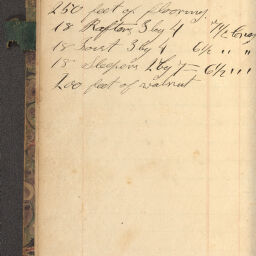 250 feet of flooring
18 Rafters 3 by 4 7½ long
18 Joist 3 by 4 6½ " "
15 Sleepers 2 by 7 = 6½ " "
200 feet of walnut